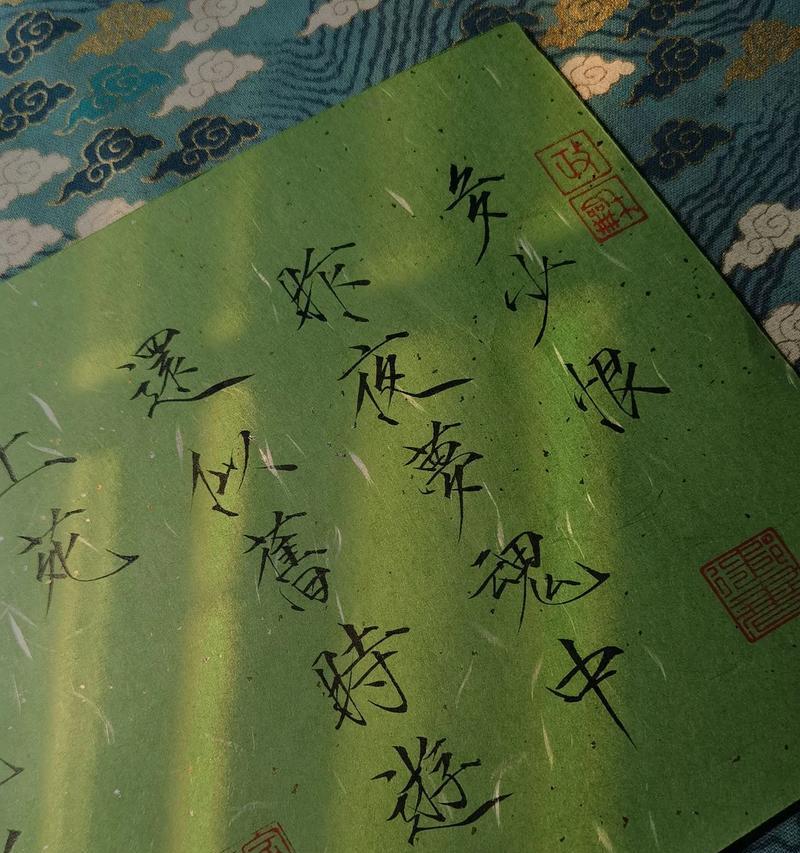 多少恨
昨夜夢魂中
還似舊時遊
上苑